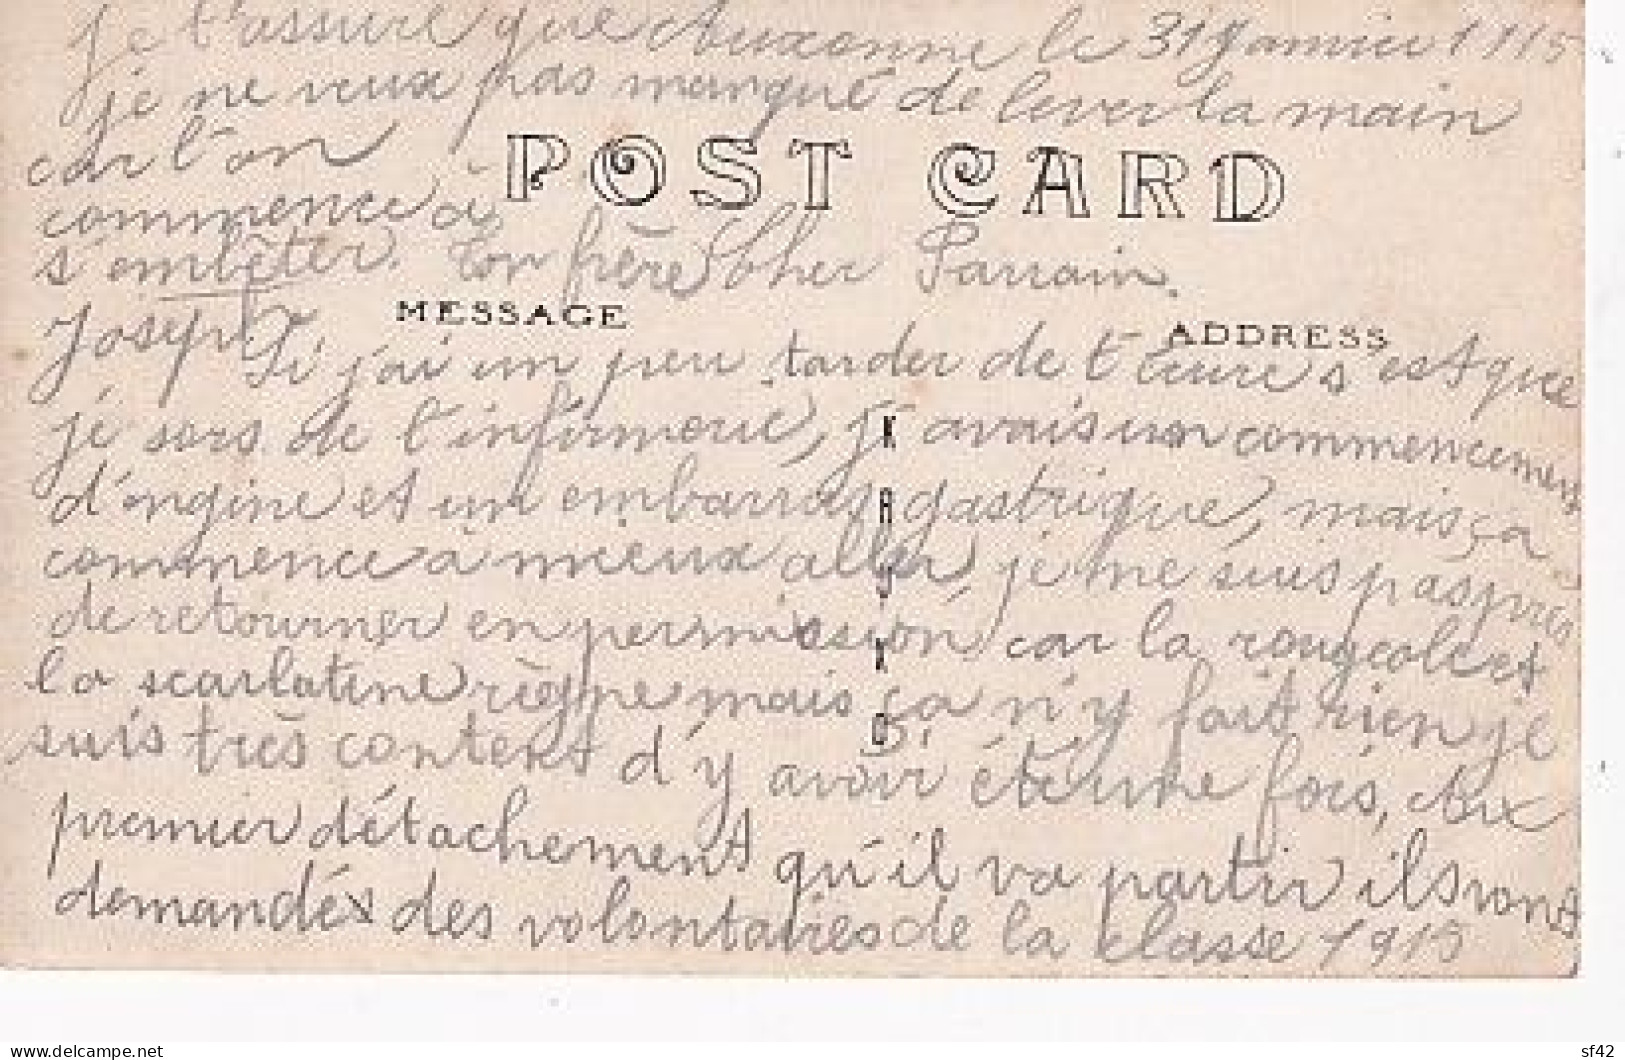 je t'assure que Auxonne le 31 Janvier 1915
je ne veux pas manqué de lever la main
car l'on
POST CARD
commence à
s'embêter. Ton frère Cher Parrain.
Joseph.
MESSAGE
ADDRESS
Si j'ai un peu tarder de t'écrire s'est que
je sors de l'infirmerie, j'avais un commencement
d'angine et un embarras gastrique, mais ça
commence à mieux aller, je me suis pas près
de retourner en permission car la rougeole et
la scarlatine règne mais ça n'y fait rien je
suis très content d'y avoir été une fois, Aux
premier détachement qu'il va partir ils vont
demandés des volontaires de la classe 1915
K
R
O
delcampe.net
sf42